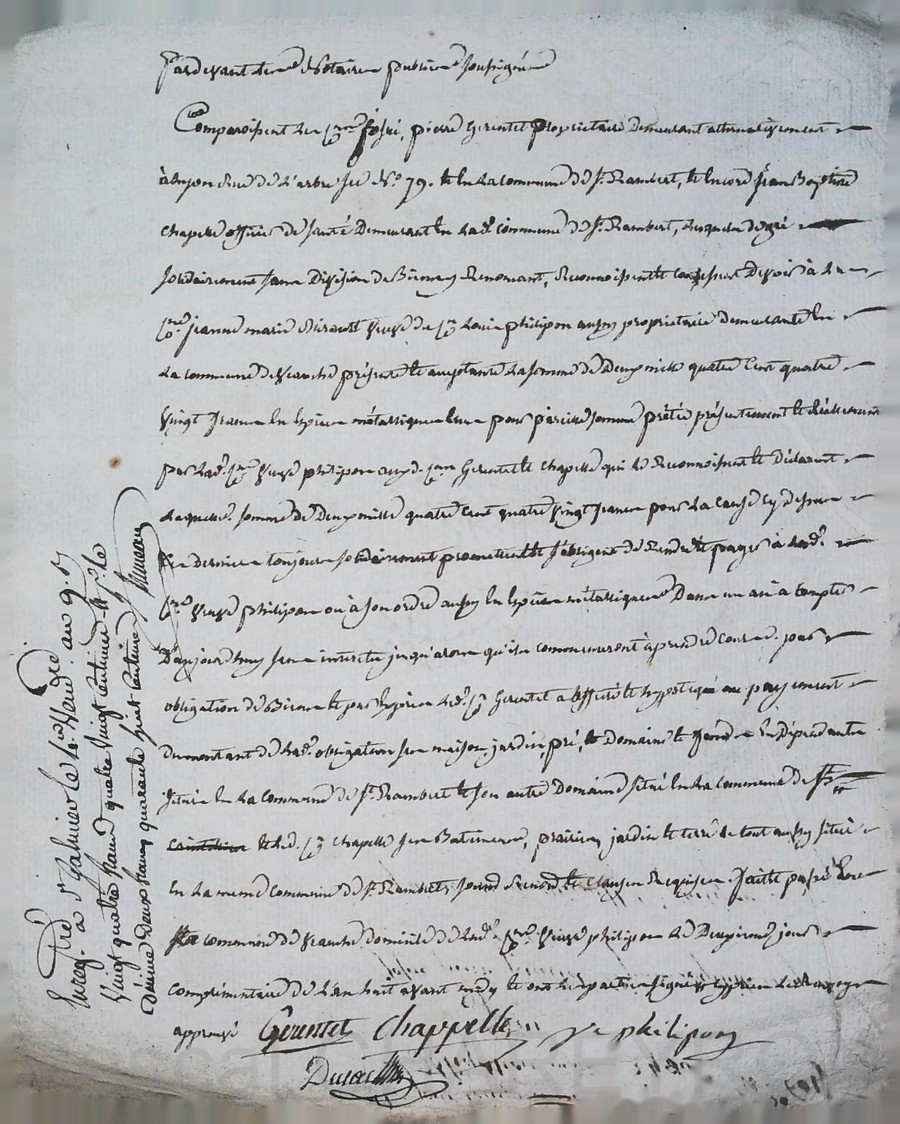 Pardevant les Notaires publics soussignés
Comparoissent les Cens pierre Gerentet Proprietaire Demeurant alternativement
à Lyon Rue de L'arbre sec N.o 79. et en la commune de St. Rambert, et encore jean Baptiste
chapelle officier de santé Demeurant en lad. commune de St. Rambert, Lesquels de gré
solidairement sans Division de Biens y Renonçant, Reconnoissent et confessent Devoir à la
Cne. jeanne marie veuve du Cn Louis philipon aussy proprietaire demeurante en
La commune de présente et acceptante La somme de Deux mille quatre Cent quatre
Vingt francs en Espèces métalliques pour pareille somme prêtée présentement et réellement
par lad. Cne Veuve philipon auxd. Cens Gerentet et chapelle qui le Reconnoissent et Déclarent
Laquelle somme de Deux mille quatre Cent quatre Vingt francs pour La cause cy dessus
Ces derniers toujours solidairement promettent et s'obligent de Rendre et payer à lad.
Cne Veuve philipon ou à son ordre aussy en Espèces métalliques Dans un an à compter
D'aujourd'huy sans interets jusqu'alors qu'ils commenceront à prendre cours. pour
obligation de Biens et par Exprès led. Cn Gerentet a affecté et hypotéqué au payement
du montant de lad. obligation ses maison, jardin, pré, Domaine et fonds en Dépendants
Situés en La commune de St. Rambert et son autre Domaine situé en la commune de St.
et led. Cn chapelle ses Batiments, prairies, jardin et terre le tout aussy situé
En La meme Commune de St. Rambert, sous Renonc. et clauses Requises. fait et passé En
La commune de Domicile de lad. Cne Veuve philipon Le Deuxieme jour
complémentaire de L'an huit avant midy et ont les parties signé
approuvé Gerentet Chappelle ve philipon
Enreg.tré à St. Galmier le Vend.re an 9. R.
Vingt quatre francs quatre Vingt centimes
Dixme Deux francs quarante huit centimes